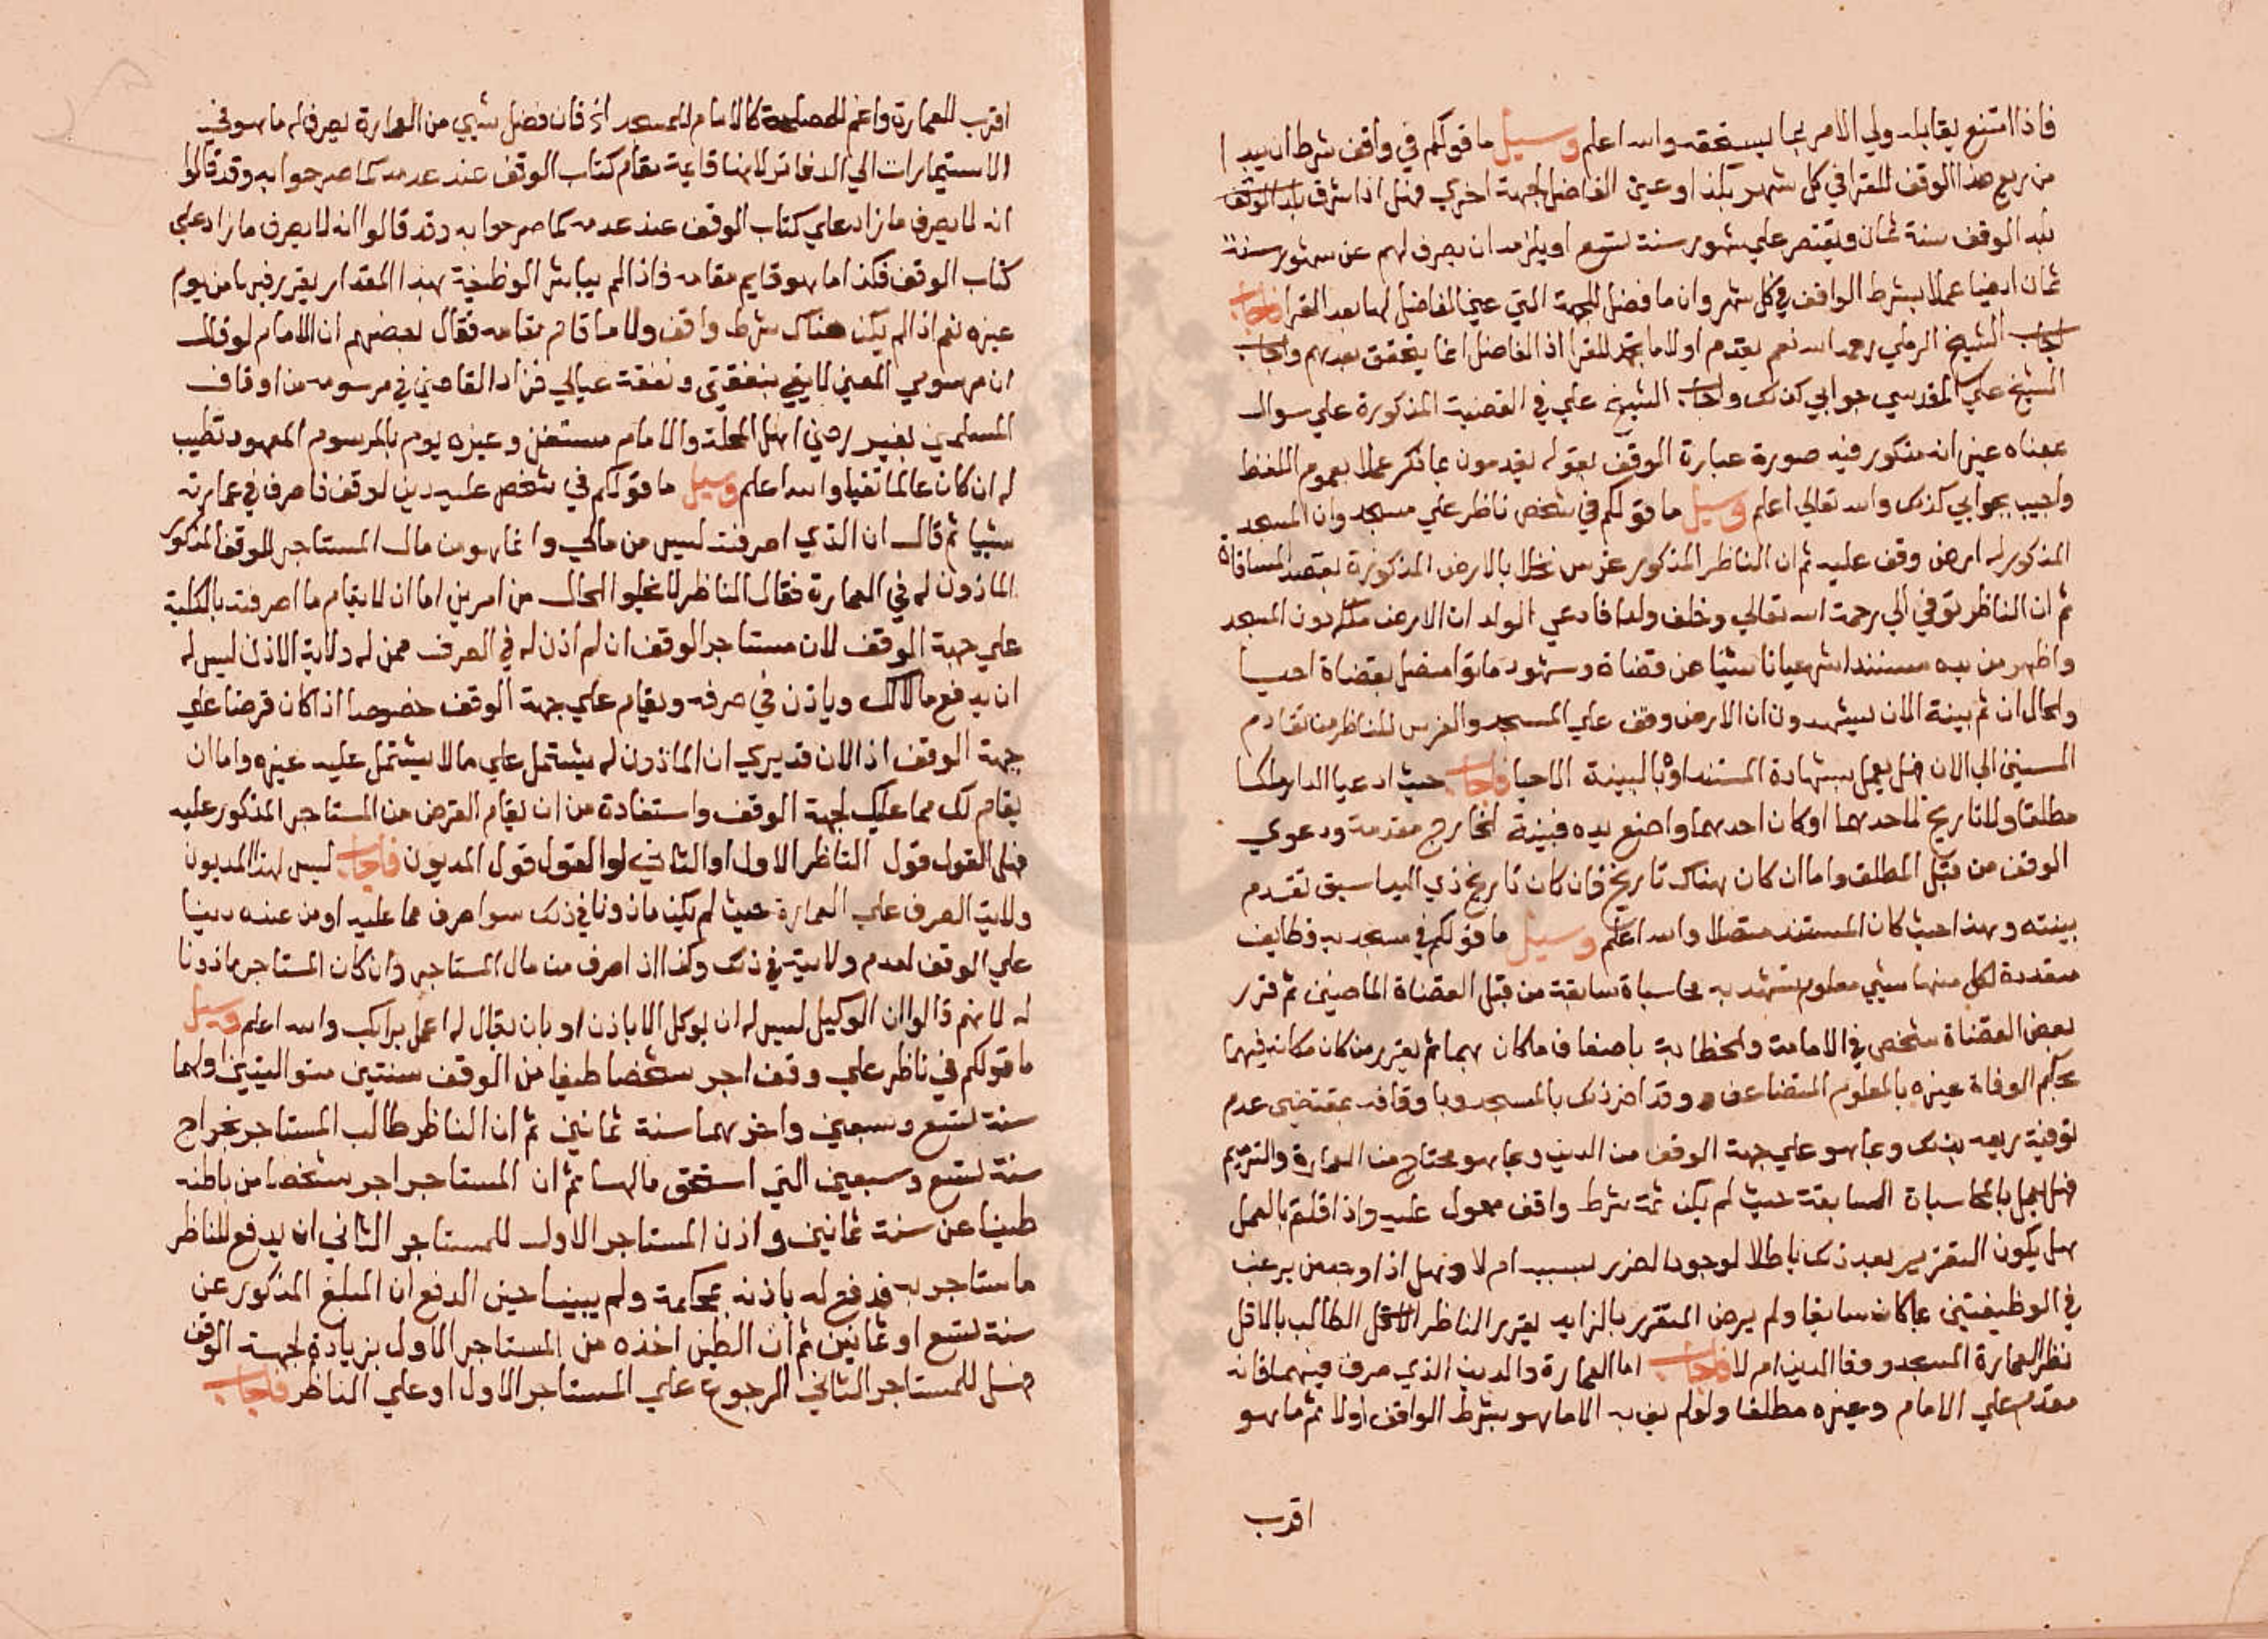 فاذا امتنع يقابله ولي الامر بما يستحقه والله اعلم وسيل ما قولكم في واقف شرط ان يبدا
من ريع هذا الوقف للقرا في كل شهر بكذا وعين الفاضل لجهة اخري فهل اذا شرق بلد الوقف
بلد الوقف سنة ثمان ويقتصر علي شهور سنة تسع او يلزمه ان يصرف لهم عن شهور سنة
ثمان ايضا عملا بشرط الواقف في كل شهر وان ما فضل للجهة التي عين الفاضل لها بعد القرا فاجاب
اجاب الشيخ الرملي رحمه الله نعم يقدم اولا ما للقرا اذ الفاضل انما يتحقق بعدهم واجاب
الشيخ علي المقدسي جوابي كذلك واجاب الشيخ علي في القضية المذكورة علي سوال
بمعناه غير انه مذكور فيه صورة عبارة الوقف بقوله يقدمون بما ذكر عملا بعموم اللفظ
واجيب بجوابي كذلك والله تعالي اعلم وسيل ما قولكم في شخص ناظر علي مسجد وان المسجد
المذكور له ارض وقف عليه ثم ان الناظر المذكور غرس نخلا بالارض المذكورة بقصد المساقاة
ثم ان الناظر توفي الي رحمة الله تعالي وخلف ولدا فادعي الولد ان الارض ملكه دون المسجد
واظهر من يده مستندا شرعيا ناشيا عن قضاة وشهود ماتوا متصل بقضاة احيا
والحال ان ثم بينة الان يشهدون ان الارض وقف علي المسجد والغرس للناظر من تقادم
السنين الي الان فهل يعمل بشهادة المستند او بالبينة الاحيا فاجاب حيث ادعيا الدار ملكا
مطلقا ولا تاريخ لاحدهما او كان احدهما واضع يده فبينة الخارج مقدمة ودعوي
الوقف من قبيل المطلق واما ان كان هناك تاريخ فان كان تاريخ ذي اليد اسبق تقدم
بينته وهذا حيث كان المستند متصلا والله اعلم وسيل ما قولكم في مسجد به وظايف
متعددة لكل منها شيي معلوم تشهد به محاسباة سابقة من قبل القضاة الماضين ثم قرر
بعض القضاة شخص في الامامة والخطابة باضعاف ما كان بهما ثم يقرر من كان مكانه فيهما
بحكم الوفاة غيره بالمعلوم المتضاعف وقد اضر ذلك بالمسجد وباوقافه بمقتضي عدم
توفية ريعه بذلك وبما هو علي جهة الوقف من الدين وبما هو محتاج من العمارة والترميم
فهل يعمل بالمحاسباة السابقة حيث لم يكن ثمة شرط واقف معول عليه واذا قلتم بالعمل
هل يكون التقرير بعد ذلك باطلا لوجود الضرر بسببه ام لا وهل اذا وجد من يرغب
في الوظيفتين بما كان سابقا ولم يرض المتقرر بالزايد يقرر الناظر الطالب بالاقل
نظر العمارة المسجد ووفا الدين ام لا فاجاب اما العمارة والدين الذي صرف فيهما فانه
مقدم علي الامام وغيره مطلقا ولو لم يف به الا ما هو بشرط الواقف اولا ثم ما هو
اقرب
اقرب للعمارة واعم للمصلحة كالامام للمسجد اذ فان فضل شيي من العمارة يصرف له ما هو في
الاستيمارات الي الدفاتر لانها قايمة مقام كتاب الوقف عند عدمه كما صرحوا به وقد قالوا
انه لا يصرف ما زاد علي كتاب الوقف عند عدمه كما صرحوا به وقد قالوا انه لا يصرف ما زاد علي
كتاب الوقف فكذا ما هو قايم مقامه فاذا لم يباشر الوظيفة بهذا المقدار يقرر فيها من يوم
غيره نعم اذا لم يكن هناك شرط واقف ولا ما قام مقامه فقال بعضهم ان الامام لو قال
ان مرسومي المعين لا يفي بنفقتي ونفقة عيالي فزاد القاضي في مرسومه من اوقاف
المسلمين بغير رضي اهل المحلة والامام مستغن وغيره يوم بالمرسوم المعهود تطيب
له ان كان عالما تقيا والله اعلم وسيل ما قولكم في شخص عليه دين لوقف فاصرف في عمارته
شييا ثم قال ان الذي اصرفته ليس من مالي وانما هو من مال المستاجر للوقف المذكور
الماذون له في العمارة فقال الناظر لا يخلو الحال من امرين اما ان لا يقام ما اصرفته بالكلية
علي جهة الوقف لان مستاجر الوقف ان لم اذن له في الصرف ممن له ولاية الاذن ليس له
ان يدفع مالا لك وياذن في صرفه ويقام علي جهة الوقف خصوصا اذا كان قرضا علي
جهة الوقف اذ الان قد يري ان الماذون له يشتمل علي ما لا يشتمل عليه غيره واما ان
يقام لك مما عليك لجهة الوقف واستفادة من ان يقام القرض من المستاجر المذكور عليه
فهل القول قول الناظر الاول او الثاني او القول قول المديون فاجاب ليس لهذا المديون
ولاية الصرف علي العمارة حيث لم يكن ماذونا في ذلك سوا صرف مما عليه او من عنده دينا
علي الوقف لعدم ولايته في ذلك وكذا اذ اصرف من مال المستاجر وان كان المستاجر ماذونا
له لانهم قالوا ان الوكيل ليس له ان يوكل الا باذن او بان يقال له اعمل برايك والله اعلم وسيل
ما قولكم في ناظر علي وقف اجر شخصا طينا من الوقف سنتين متواليتين اولهما
سنة تسع وسبعين واخرهما سنة ثمانين ثم ان الناظر طالب المستاجر بخراج
سنة تسع وسبعين التي استحق مالها ثم ان المستاجر اجر شخصا من باطنه
طينا عن سنة ثمانين واذن المستاجر الاول للمستاجر الثاني ان يدفع للناظر
ما ستاجر به فدفع له باذنه بمحاكمة ولم يبينا حين الدفع ان المبلغ المذكور عن
سنة تسع او ثمانين ثم ان الطين اخذه من المستاجر الاول بزيادة لجهة الوقف
فهل للمستاجر الثاني الرجوع علي المستاجر الاول او علي الناظر فاجاب